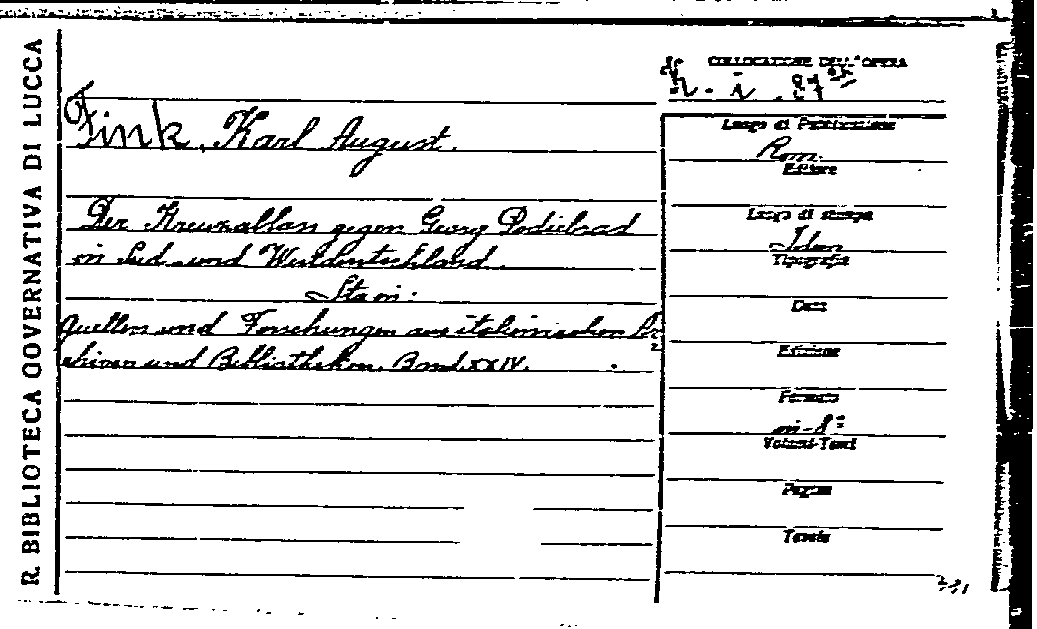 R. BIBLIOTECA GOVERNATIVA DI LUCCA
COLLOCAZIONE DELL'OPERA
Fink, Karl August.
Der Kreuzablass gegen Georg Podiebrad
in Süd und Westdeutschland.
Sta in:
Quellen und Forschungen aus italienischen Ar
chiven und Bibliotheken, Band XXIV.
Luogo di Pubblicazione
Rom.
Editore
Luogo di stampa
Idem
Tipografia
Data
Edizione
Formato
in-8°
Volumi-Tomi
Pagine
Tavole